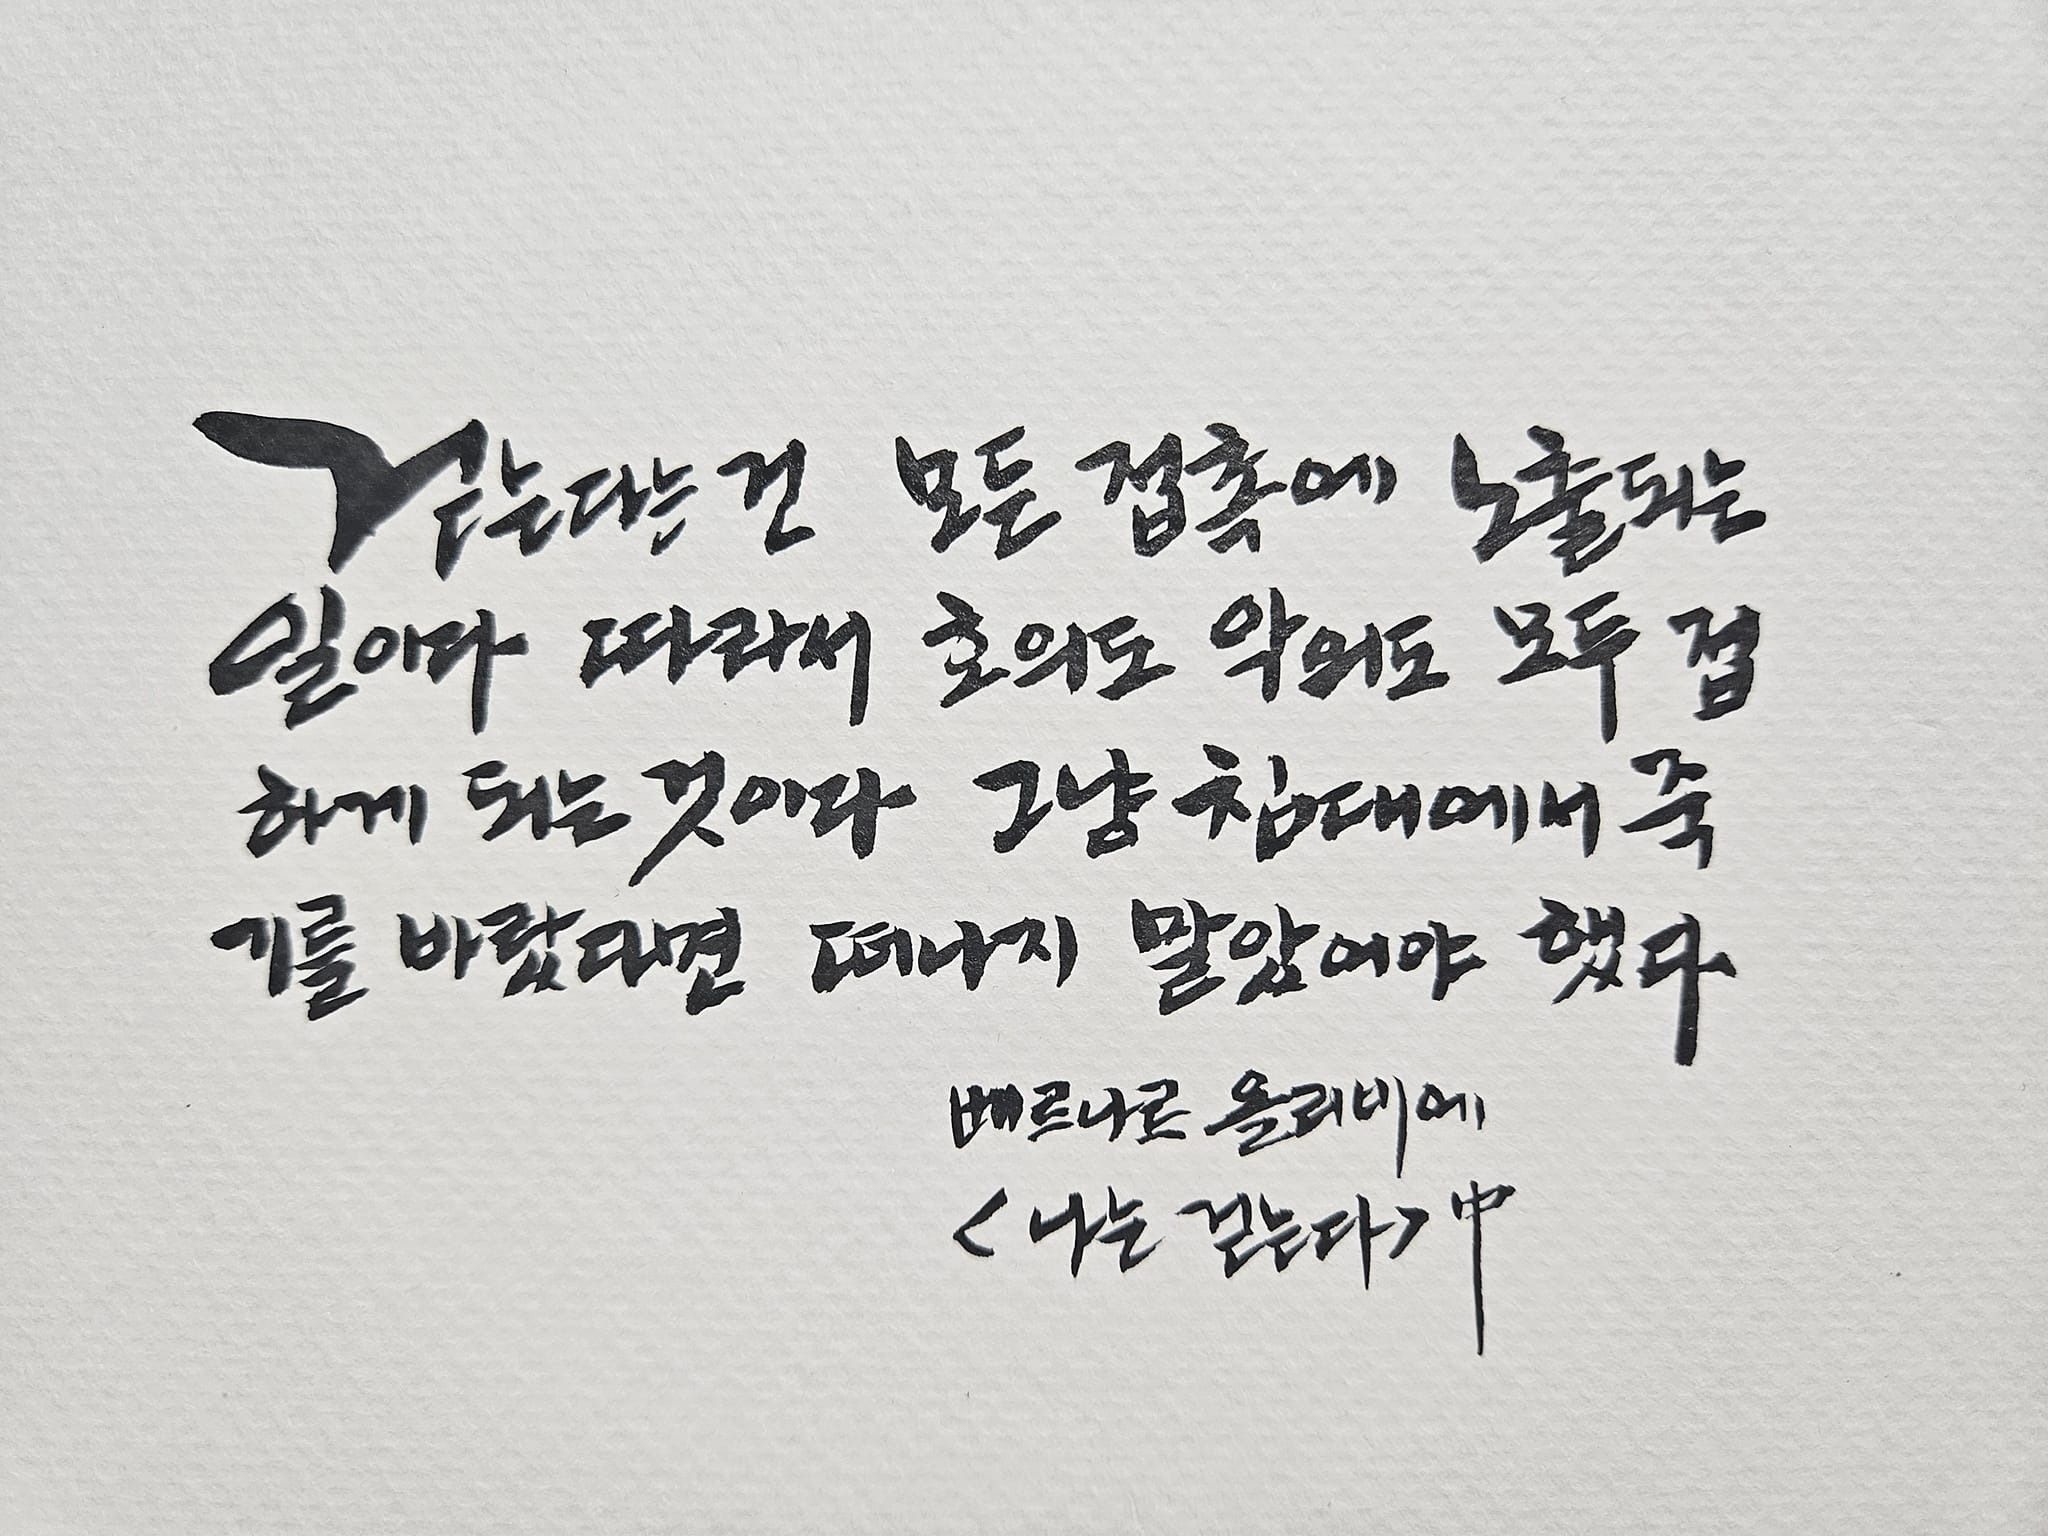 걷는다는 건 모든 접촉에 노출되는
일이다 따라서 호의도 악의도 모두 접
하게 되는 것이다 그냥 침대에서 죽
기를 바랐다면 떠나지 말았어야 했다
베르나르 올리비에
<나는 걷는다> 中